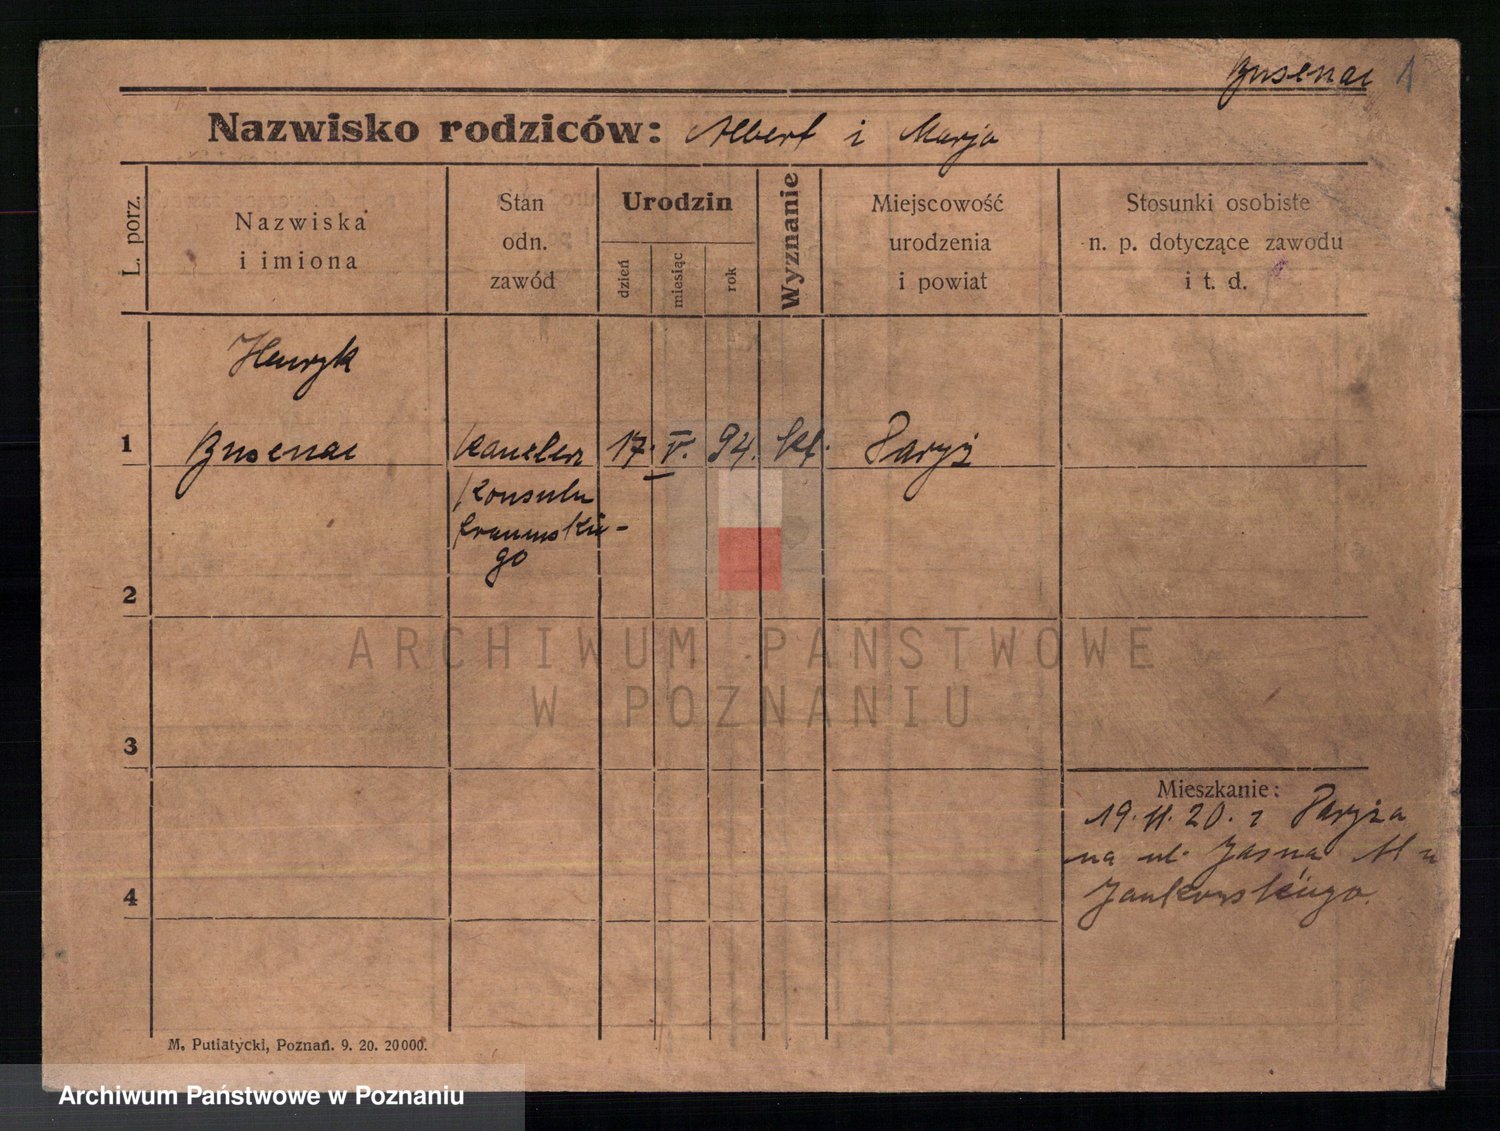 Busenac 1
Nazwisko rodziców: Albert i Marja
L. porz.
Nazwiska
i imiona
Stan
odn.
zawód
Urodzin
dzień
miesiąc
rok
Wyznanie
Miejscowość
urodzenia
i powiat
Stosunki osobiste
n. p. dotyczące zawodu
i t. d.
Henryk
1 Busenac kanclerz 17. V. 94. kt. Paryż
konsulu
francuskie-
go
2
3
4
Mieszkanie:
19.11.20. z Paryża
na ul. Jasna 11 u
Jankowskiego.
M. Putiatycki, Poznań. 9. 20. 20000.
ARCHIWUM PAŃSTWOWE
W POZNANIU
Archiwum Państwowe w Poznaniu